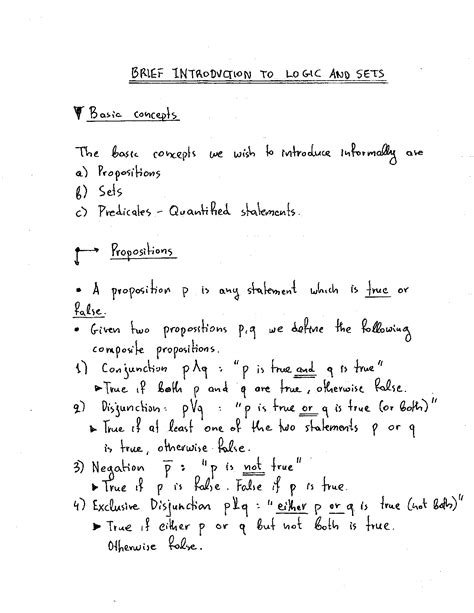 BRIEF INTRODUCTION TO LOGIC AND SETS
▼ Basic concepts
The basic concepts we wish to introduce informally are
a) Propositions
b) Sets
c) Predicates - Quantified statements.
Propositions
• A proposition p is any statement which is true or
false.
• Given two propositions p,q we define the following
composite propositions.
1) Conjunction p∧q : "p is true and q is true"
▸ True if both p and q are true, otherwise false.
2) Disjunction: p∨q : "p is true or q is true (or both)"
▸ True if at least one of the two statements p or q
is true, otherwise false.
3) Negation p̅ : "p is not true"
▸ True if p is false. False if p is true.
4) Exclusive Disjunction p⊻q : "either p or q is true (not both)"
▸ True if either p or q but not both is true.
Otherwise false.